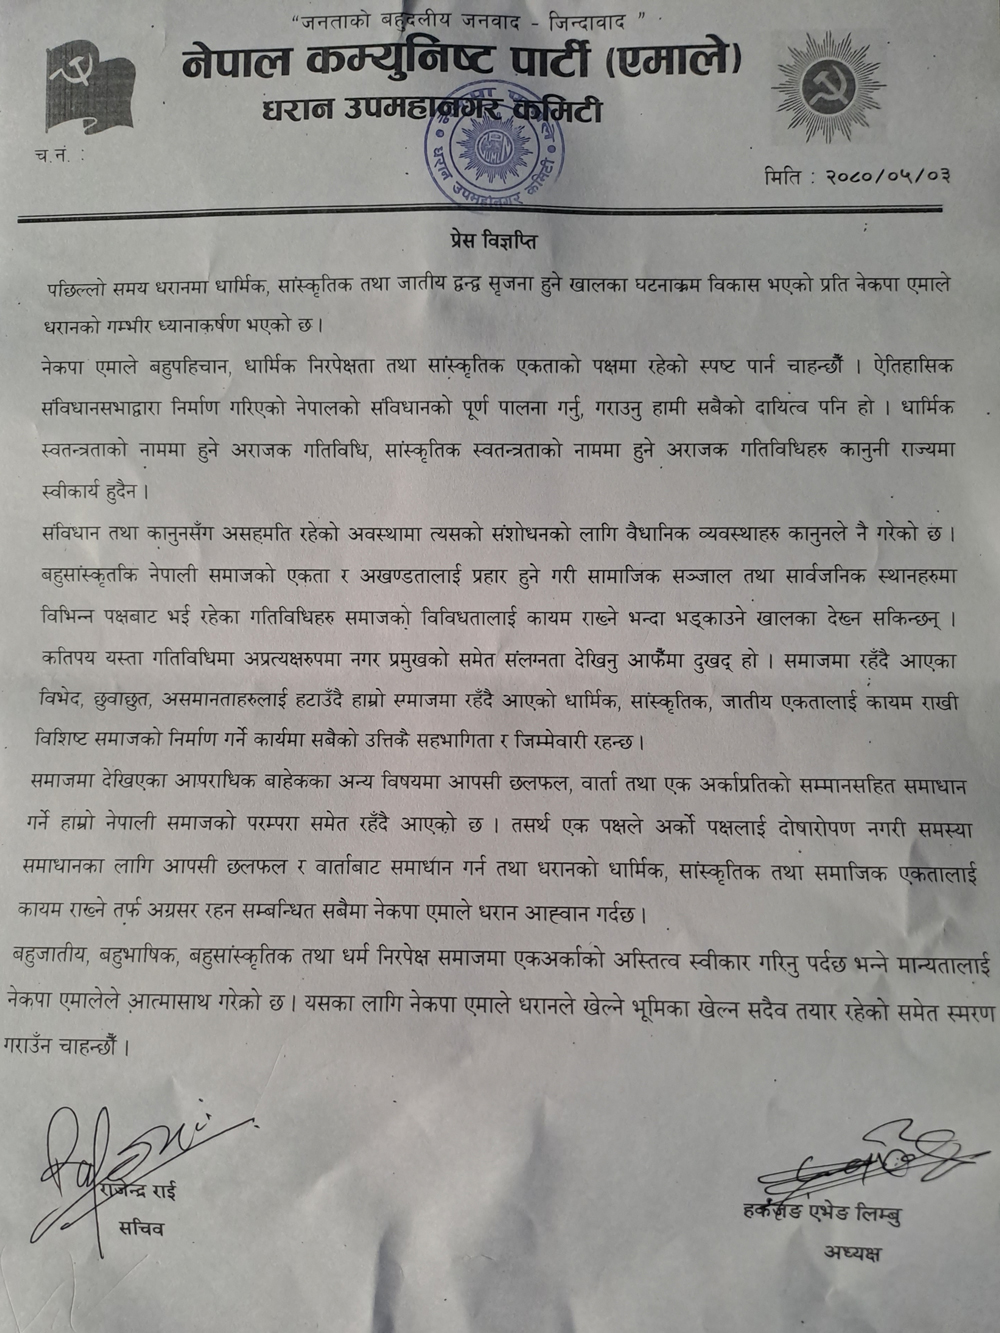 “जनताको बहुदलीय जनवाद - जिन्दावाद ”
नेपाल कम्युनिष्ट पार्टी (एमाले)
धरान उपमहानगर कमिटी
च.नं. :
धरान उपमहानगर कमिटी
मिति : २०८०/०५/०३
प्रेस विज्ञप्ति
पछिल्लो समय धरानमा धार्मिक, सांस्कृतिक तथा जातीय द्वन्द्व सृजना हुने खालका घटनाक्रम विकास भएको प्रति नेकपा एमाले
धरानको गम्भीर ध्यानाकर्षण भएको छ ।
नेकपा एमाले बहुपहिचान, धार्मिक निरपेक्षता तथा सांस्कृतिक एकताको पक्षमा रहेको स्पष्ट पार्न चाहन्छौँ । ऐतिहासिक
संविधानसभाद्वारा निर्माण गरिएको नेपालको संविधानको पूर्ण पालना गर्नु, गराउनु हामी सबैको दायित्व पनि हो । धार्मिक
स्वतन्त्रताको नाममा हुने अराजक गतिविधि, सांस्कृतिक स्वतन्त्रताको नाममा हुने अराजक गतिविधिहरु कानुनी राज्यमा
स्वीकार्य हुदैन ।
संविधान तथा कानुनसँग असहमति रहेको अवस्थामा त्यसको संशोधनको लागि वैधानिक व्यवस्थाहरु कानुनले नै गरेको छ ।
बहुसांस्कृतकि नेपाली समाजको एकता र अखण्डतालाई प्रहार हुने गरी सामाजिक सञ्जाल तथा सार्वजनिक स्थानहरुमा
विभिन्न पक्षबाट भई रहेका गतिविधिहरु समाजको विविधतालाई कायम राख्ने भन्दा भड्काउने खालका देख्न सकिन्छन् ।
कतिपय यस्ता गतिविधिमा अप्रत्यक्षरुपमा नगर प्रमुखको समेत संलग्नता देखिनु आफैँमा दुखद् हो । समाजमा रहँदै आएका
विभेद, छुवाछुत, असमानताहरुलाई हटाउँदै हाम्रो समाजमा रहँदै आएको धार्मिक, सांस्कृतिक, जातीय एकतालाई कायम राखी
विशिष्ट समाजको निर्माण गर्ने कार्यमा सबैको उत्तिकै सहभागिता र जिम्मेवारी रहन्छ ।
समाजमा देखिएका आपराधिक बाहेकका अन्य विषयमा आपसी छलफल, वार्ता तथा एक अर्काप्रतिको सम्मानसहित समाधान
गर्ने हाम्रो नेपाली समाजको परम्परा समेत रहँदै आएको छ । तसर्थ एक पक्षले अर्को पक्षलाई दोषारोपण नगरी समस्या
समाधानका लागि आपसी छलफल र वार्ताबाट समाधान गर्न तथा धरानको धार्मिक, सांस्कृतिक तथा समाजिक एकतालाई
कायम राख्ने तर्फ अग्रसर रहन सम्बन्धित सबैमा नेकपा एमाले धरान आह्वान गर्दछ ।
बहुजातीय, बहुभाषिक, बहुसांस्कृतिक तथा धर्म निरपेक्ष समाजमा एकअर्काको अस्तित्व स्वीकार गरिनु पर्दछ भन्ने मान्यतालाई
नेकपा एमालेले आत्मासाथ गरेको छ । यसका लागि नेकपा एमाले धरानले खेल्ने भूमिका खेल्न सदैव तयार रहेको समेत स्मरण
गराउँन चाहन्छौँ ।
राजेन्द्र राई
सचिव
हर्कजङ एभेङ लिम्बु
अध्यक्ष